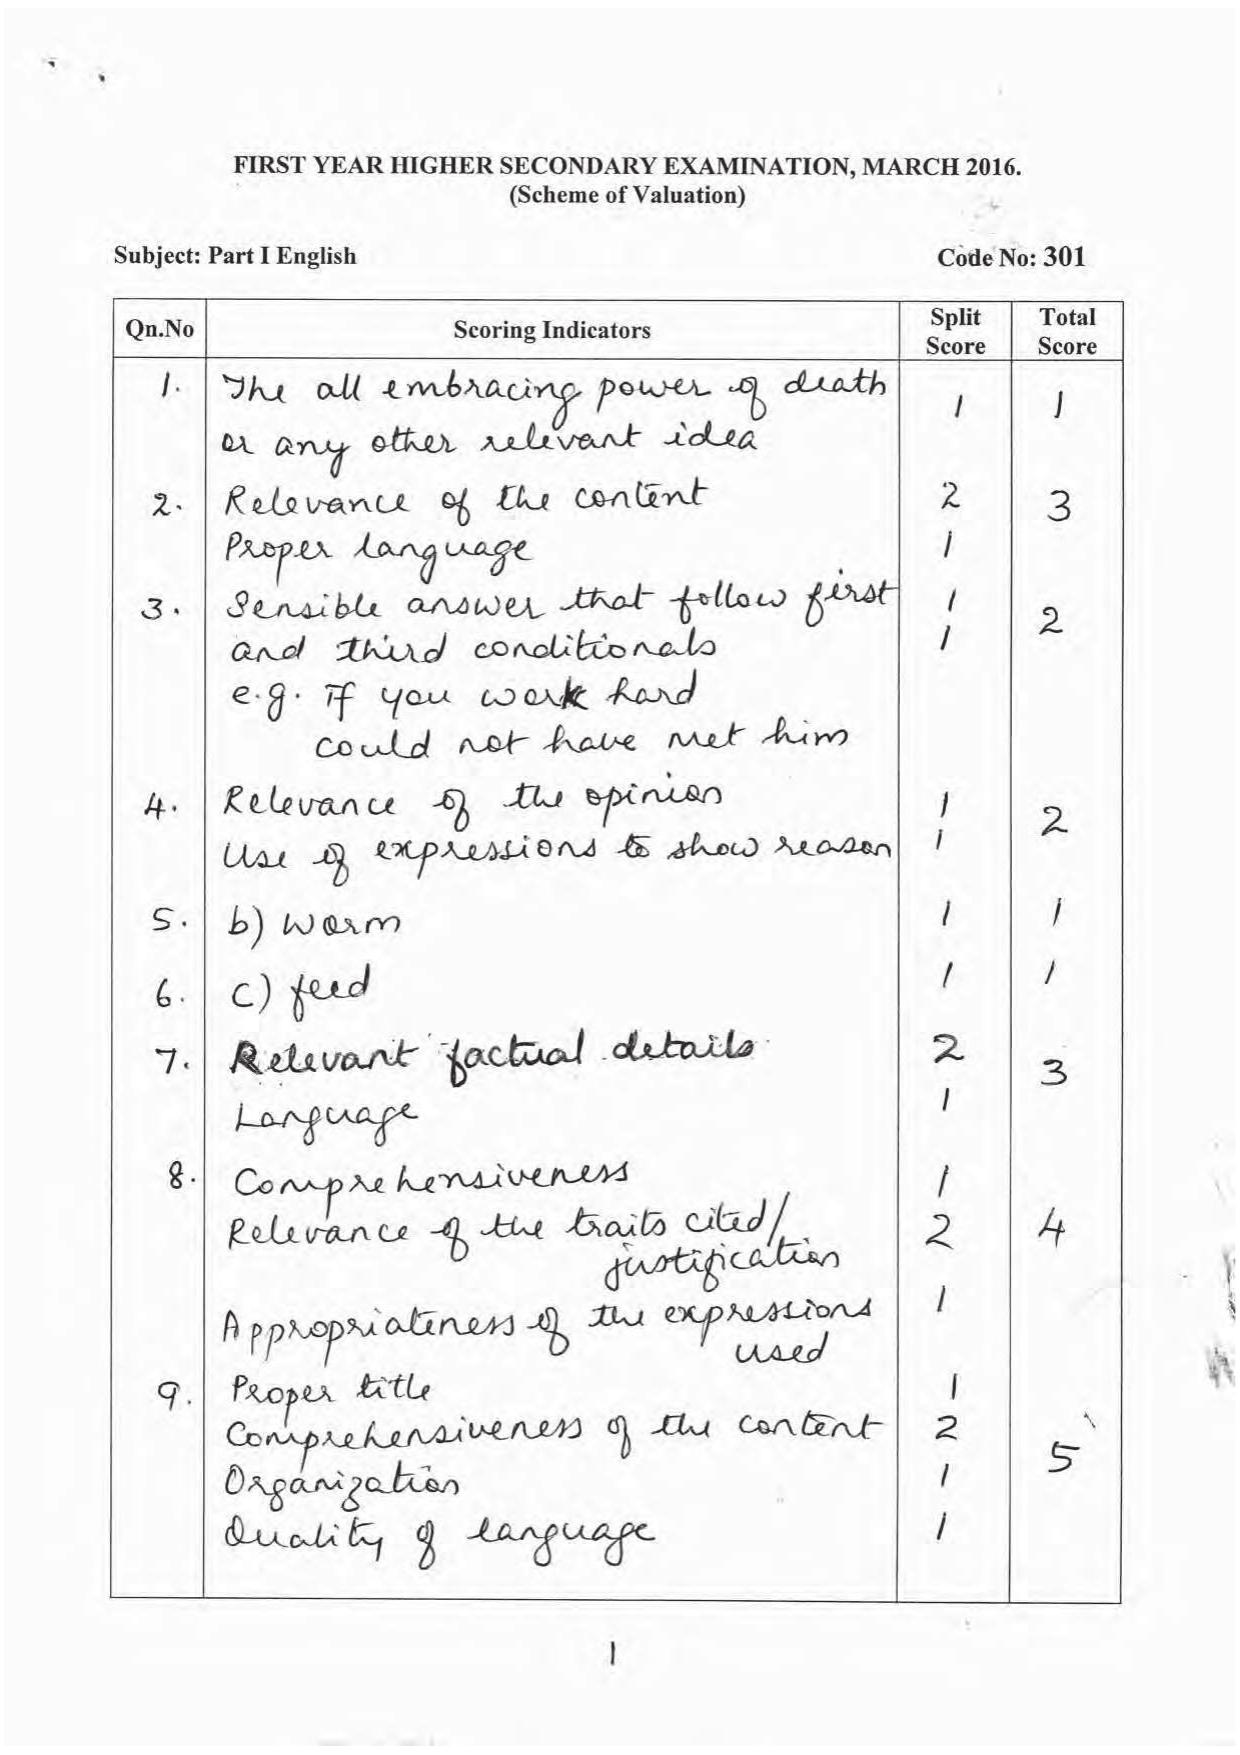 FIRST YEAR HIGHER SECONDARY EXAMINATION, MARCH 2016.
(Scheme of Valuation)
Subject: Part I English Code No: 301
Qn.No Scoring Indicators Split Score Total Score
1. The all embracing power of death 1 1
or any other relevant idea
2. Relevance of the content 2 3
Proper language 1
3. Sensible answer that follow first 1 2
and third conditionals 1
e.g. If you work hard
could not have met him
4. Relevance of the opinion 1 2
Use of expressions to show reason 1
5. b) worm 1 1
6. c) feed 1 1
7. Relevant factual details 2 3
Language 1
8. Comprehensiveness 1
Relevance of the traits cited/ 2 4
justification
Appropriateness of the expressions 1
used
9. Proper title 1
Comprehensiveness of the content 2 5
Organization 1
Quality of language 1
1